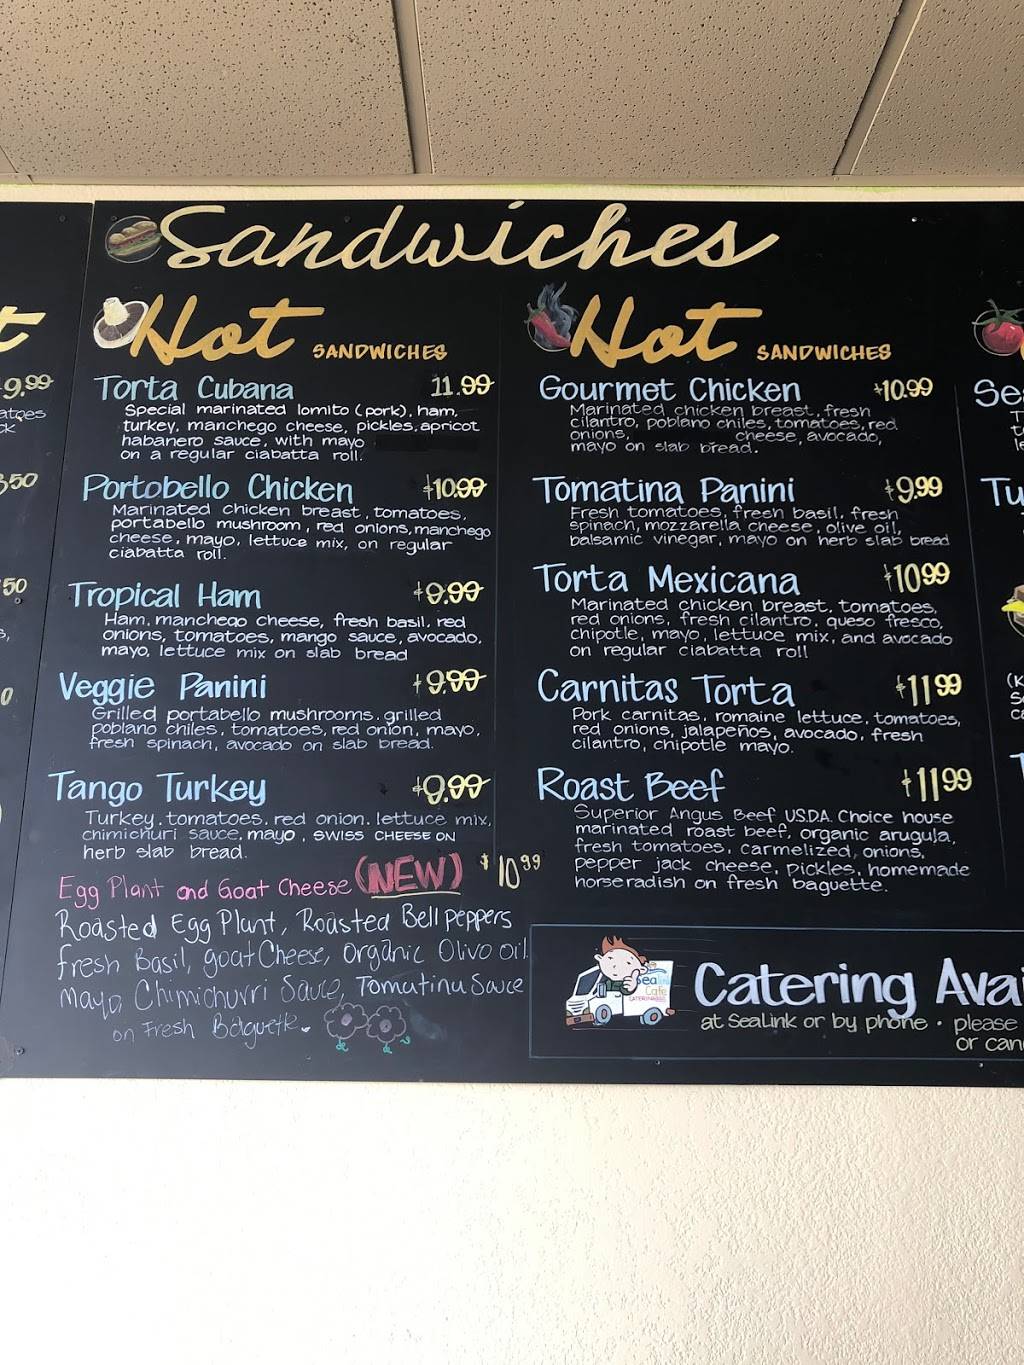 Sandwiches
Hot SANDWICHES
Torta Cubana 11.99
Special marinated lomito (pork), ham,
turkey, manchego cheese, pickles, apricot
habanero sauce, with mayo
on a regular ciabatta roll.
Portobello Chicken $10.99
Marinated chicken breast, tomatoes,
portabello mushroom, red onions, manchego
cheese, mayo, lettuce mix, on regular
ciabatta roll.
Tropical Ham $9.99
Ham, manchego cheese, fresh basil, red
onions, tomatoes, mango sauce, avocado,
mayo, lettuce mix on slab bread
Veggie Panini $9.99
Grilled portabello mushrooms, grilled
poblano chiles, tomatoes, red onion, mayo,
fresh spinach, avocado on slab bread.
Tango Turkey $9.99
Turkey, tomatoes, red onion, lettuce mix,
chimichuri sauce, mayo, SWISS CHEESE ON
herb slab bread.
Egg Plant and Goat Cheese (NEW) $10.99
Roasted Egg Plant, Roasted Bell peppers
fresh Basil, goat Cheese, Organic Olivo oil.
Mayo, Chimichurri Sauce, Tomatina Sauce
on Fresh Baguette.
Hot SANDWICHES
Gourmet Chicken $10.99
Marinated chicken breast, fresh
cilantro, poblano chiles, tomatoes, red
onions, cheese, avocado,
mayo on slab bread.
Tomatina Panini $9.99
Fresh tomatoes, fresh basil, fresh
spinach, mozzarella cheese, olive oil,
balsamic vinegar, mayo on herb slab bread
Torta Mexicana $10.99
Marinated chicken breast, tomatoes,
red onions, fresh cilantro, queso fresco,
chipotle, mayo, lettuce mix, and avocado
on regular ciabatta roll
Carnitas Torta $11.99
Pork carnitas, romaine lettuce, tomatoes,
red onions, jalapeños, avocado, fresh
cilantro, chipotle mayo.
Roast Beef $11.99
Superior Angus Beef USDA. Choice house
marinated roast beef, organic arugula,
fresh tomatoes, carmelized, onions,
pepper jack cheese, pickles, homemade
horseradish on fresh baguette.
Catering Avai
at SeaLink or by phone • please
or can